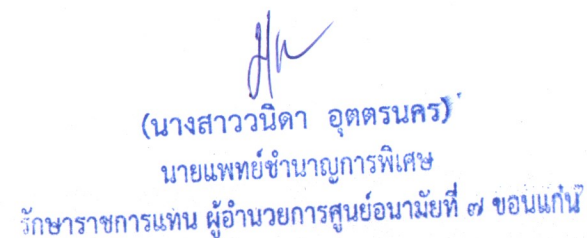 (นางสาววนิดา อุตตรนคร)
นายแพทย์ชำนาญการพิเศษ
รักษาราชการแทน ผู้อำนวยการศูนย์อนามัยที่ ๗ ขอนแก่น